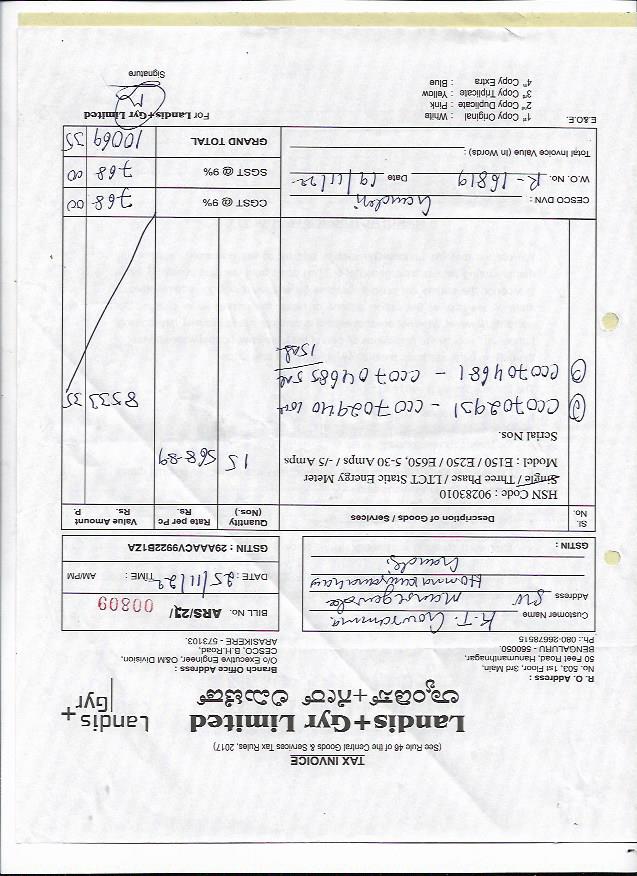 TAX INVOICE
(See Rule 46 of the Central Goods & Services Tax Rules, 2017)
Landis+Gyr Limited
ಲ್ಯಾಂಡಿಸ್+ಗೀರ್ ಲಿಮಿಟೆಡ್
Landis+
Gyr
R. O. Address :
No. 503, 1st Floor, 3rd Main,
50 Feet Road, Hanumanthnagar,
BENGALURU - 5600050.
Ph.: 080-26678515
Branch Office Address :
O/o Executive Engineer, O&M Division,
CESCO, B.H.Road,
ARASIKERE - 573103.
Customer Name K.T. Gowramma
Address
GSTIN :
BILL No. ARS/21/ 00809
DATE : 25/11/22 TIME : AM/PM
GSTIN : 29AAACV9922B1ZA
Sl. No. Description of Goods / Services Quantity (Nos.) Rate per Pc Rs. Value Amount Rs. P.
HSN Code : 90283010
Single / Three Phase / LTCT Static Energy Meter
Model : E150 / E250 / E650, 5-30 Amps / -/5 Amps
15 568-89 8533 35
Serial Nos.
1 CC0702931 - CC0702940
2 CC0704681 - CC0704685
CESCO DVN :
W.O. No. R-16819 Date 19/11/22
Total Invoice Value (In Words) :
CGST @ 9% 768 00
SGST @ 9% 768 00
GRAND TOTAL 10069 35
E.&.O.E.
1st Copy Original : White
2nd Copy Duplicate : Pink
3rd Copy Triplicate : Yellow
4th Copy Extra : Blue
For Landis+Gyr Limited
Signature